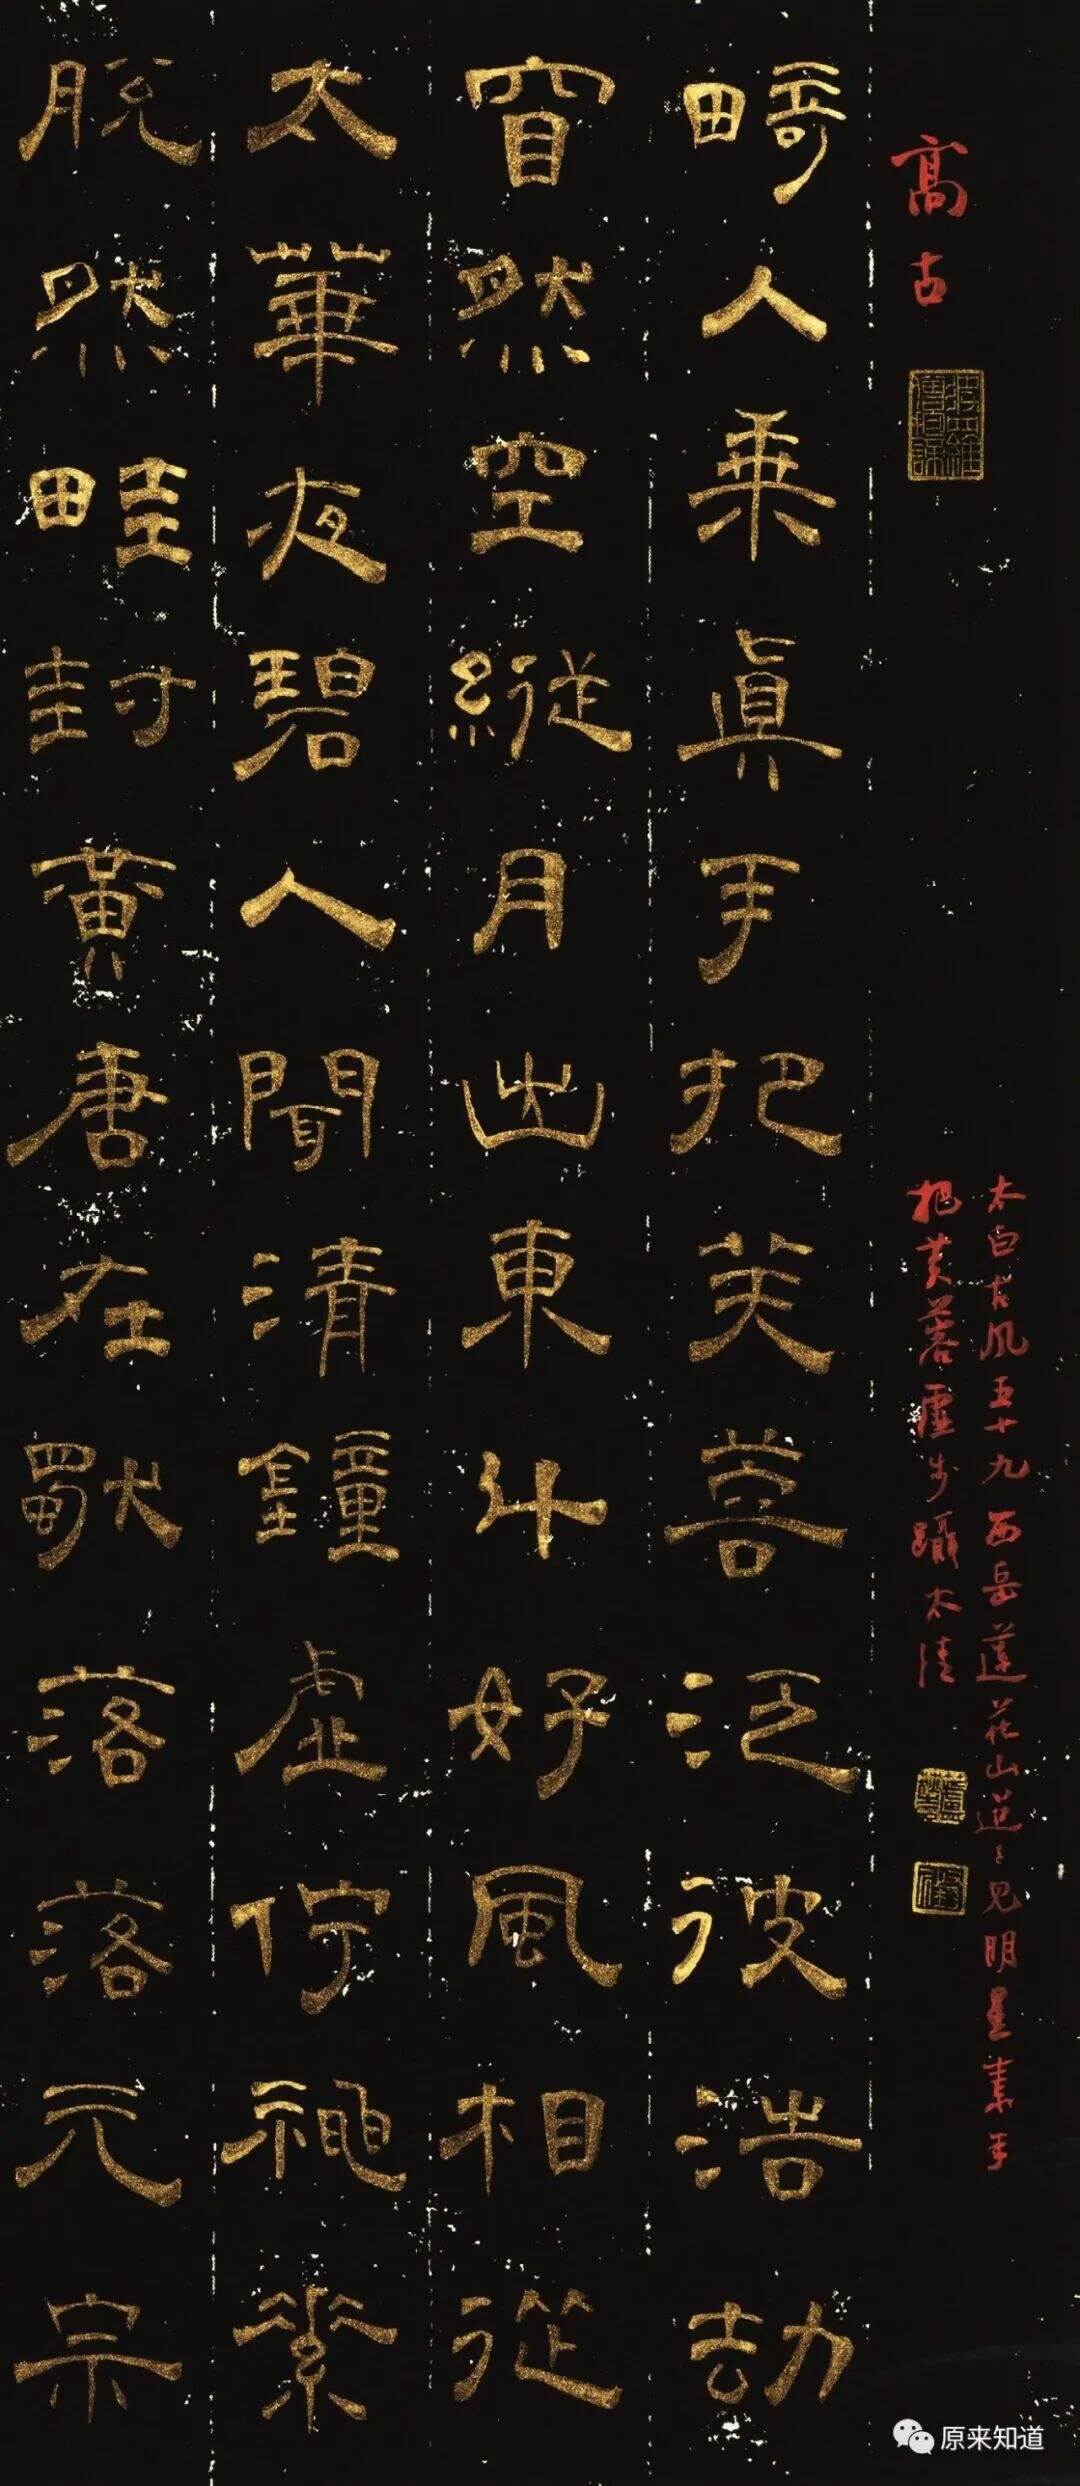 高古
太白古風五十九西岳蓮花山迢〻見明星素手
把芙蓉虛步躡太清
畸人乘眞手把芙蓉泛彼浩劫
窅然空縱月出東斗好風相從
太華夜碧人聞清鐘虛佇神素
脫然畦封黃唐在獨落落元宗
原来知道